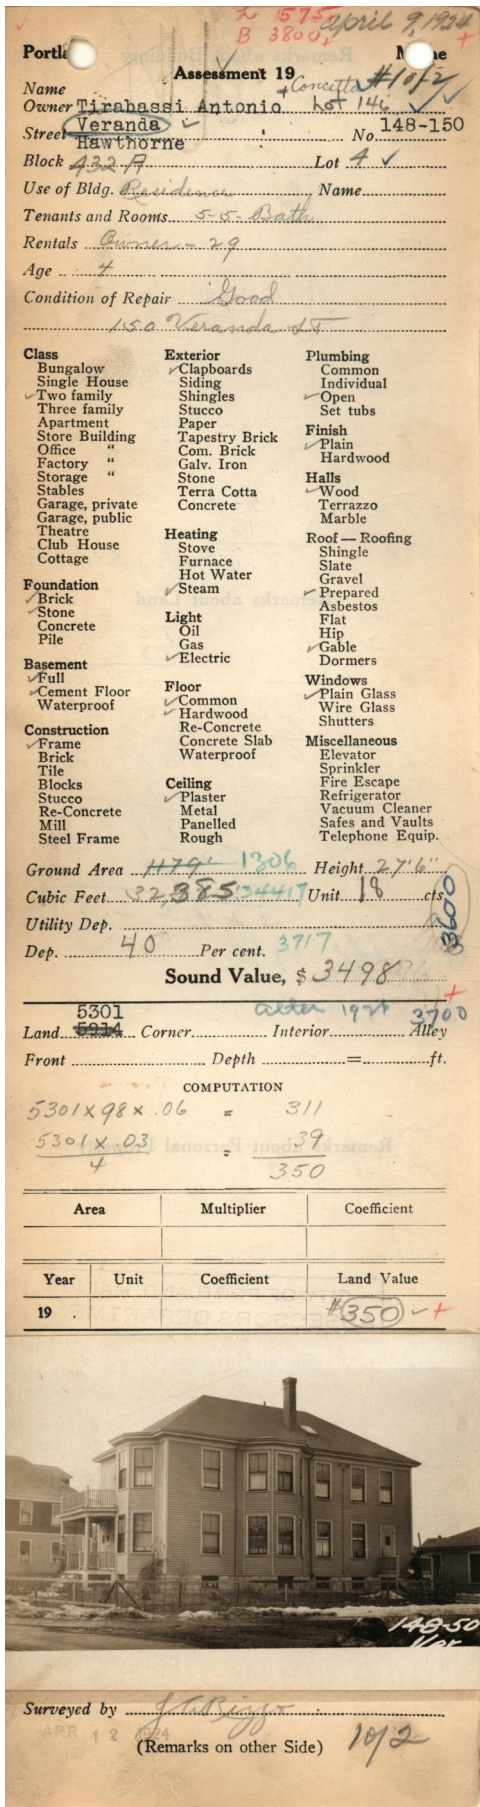 L 1575 April 9, 1924
B 3800 +
Assessment 19
Name + Concetta #1 of 2
Owner Tirabassi Antonio Lot 146
Street Veranda No. 148-150
Hawthorne
Block 432 A Lot 4 ✓
Use of Bldg. Residence Name
Tenants and Rooms 5-5- Bath
Rentals Owner - 29
Age 4
Condition of Repair Good
150 Veranda St
Class
Bungalow
Single House
✓ Two family
Three family
Apartment
Store Building
Office "
Factory "
Storage "
Stables
Garage, private
Garage, public
Theatre
Club House
Cottage
Foundation
✓ Brick
✓ Stone
Concrete
Pile
Basement
✓ Full
✓ Cement Floor
Waterproof
Construction
✓ Frame
Brick
Tile
Blocks
Stucco
Re-Concrete
Mill
Steel Frame
Exterior
✓ Clapboards
Siding
Shingles
Stucco
Paper
Tapestry Brick
Com. Brick
Galv. Iron
Stone
Terra Cotta
Concrete
Heating
Stove
Furnace
Hot Water
✓ Steam
Light
Oil
Gas
✓ Electric
Floor
✓ Common
✓ Hardwood
Re-Concrete
Concrete Slab
Waterproof
Ceiling
✓ Plaster
Metal
Panelled
Rough
Plumbing
Common
Individual
✓ Open
Set tubs
Finish
✓ Plain
Hardwood
Halls
✓ Wood
Terrazzo
Marble
Roof — Roofing
Shingle
Slate
Gravel
✓ Prepared
Asbestos
Flat
Hip
✓ Gable
Dormers
Windows
✓ Plain Glass
Wire Glass
Shutters
Miscellaneous
Elevator
Sprinkler
Fire Escape
Refrigerator
Vacuum Cleaner
Safes and Vaults
Telephone Equip.
Ground Area 1179 1306 Height 27'6"
Cubic Feet 32,385 34417 Unit 18 cts.
3600
Utility Dep.
Dep. 40 Per cent. 3717
Sound Value, $ 3498
5301 3700
Land 5914 Corner Interior Alley
Front Depth = ft.
COMPUTATION
5301 x 98 x .06 = 311
5301 x .03 / 4 = 39
350
Area Multiplier Coefficient
Year Unit Coefficient Land Value
19 #350 ✓ +
148-50
Ver
Surveyed by
APR 12 1924
(Remarks on other Side) 1 of 2